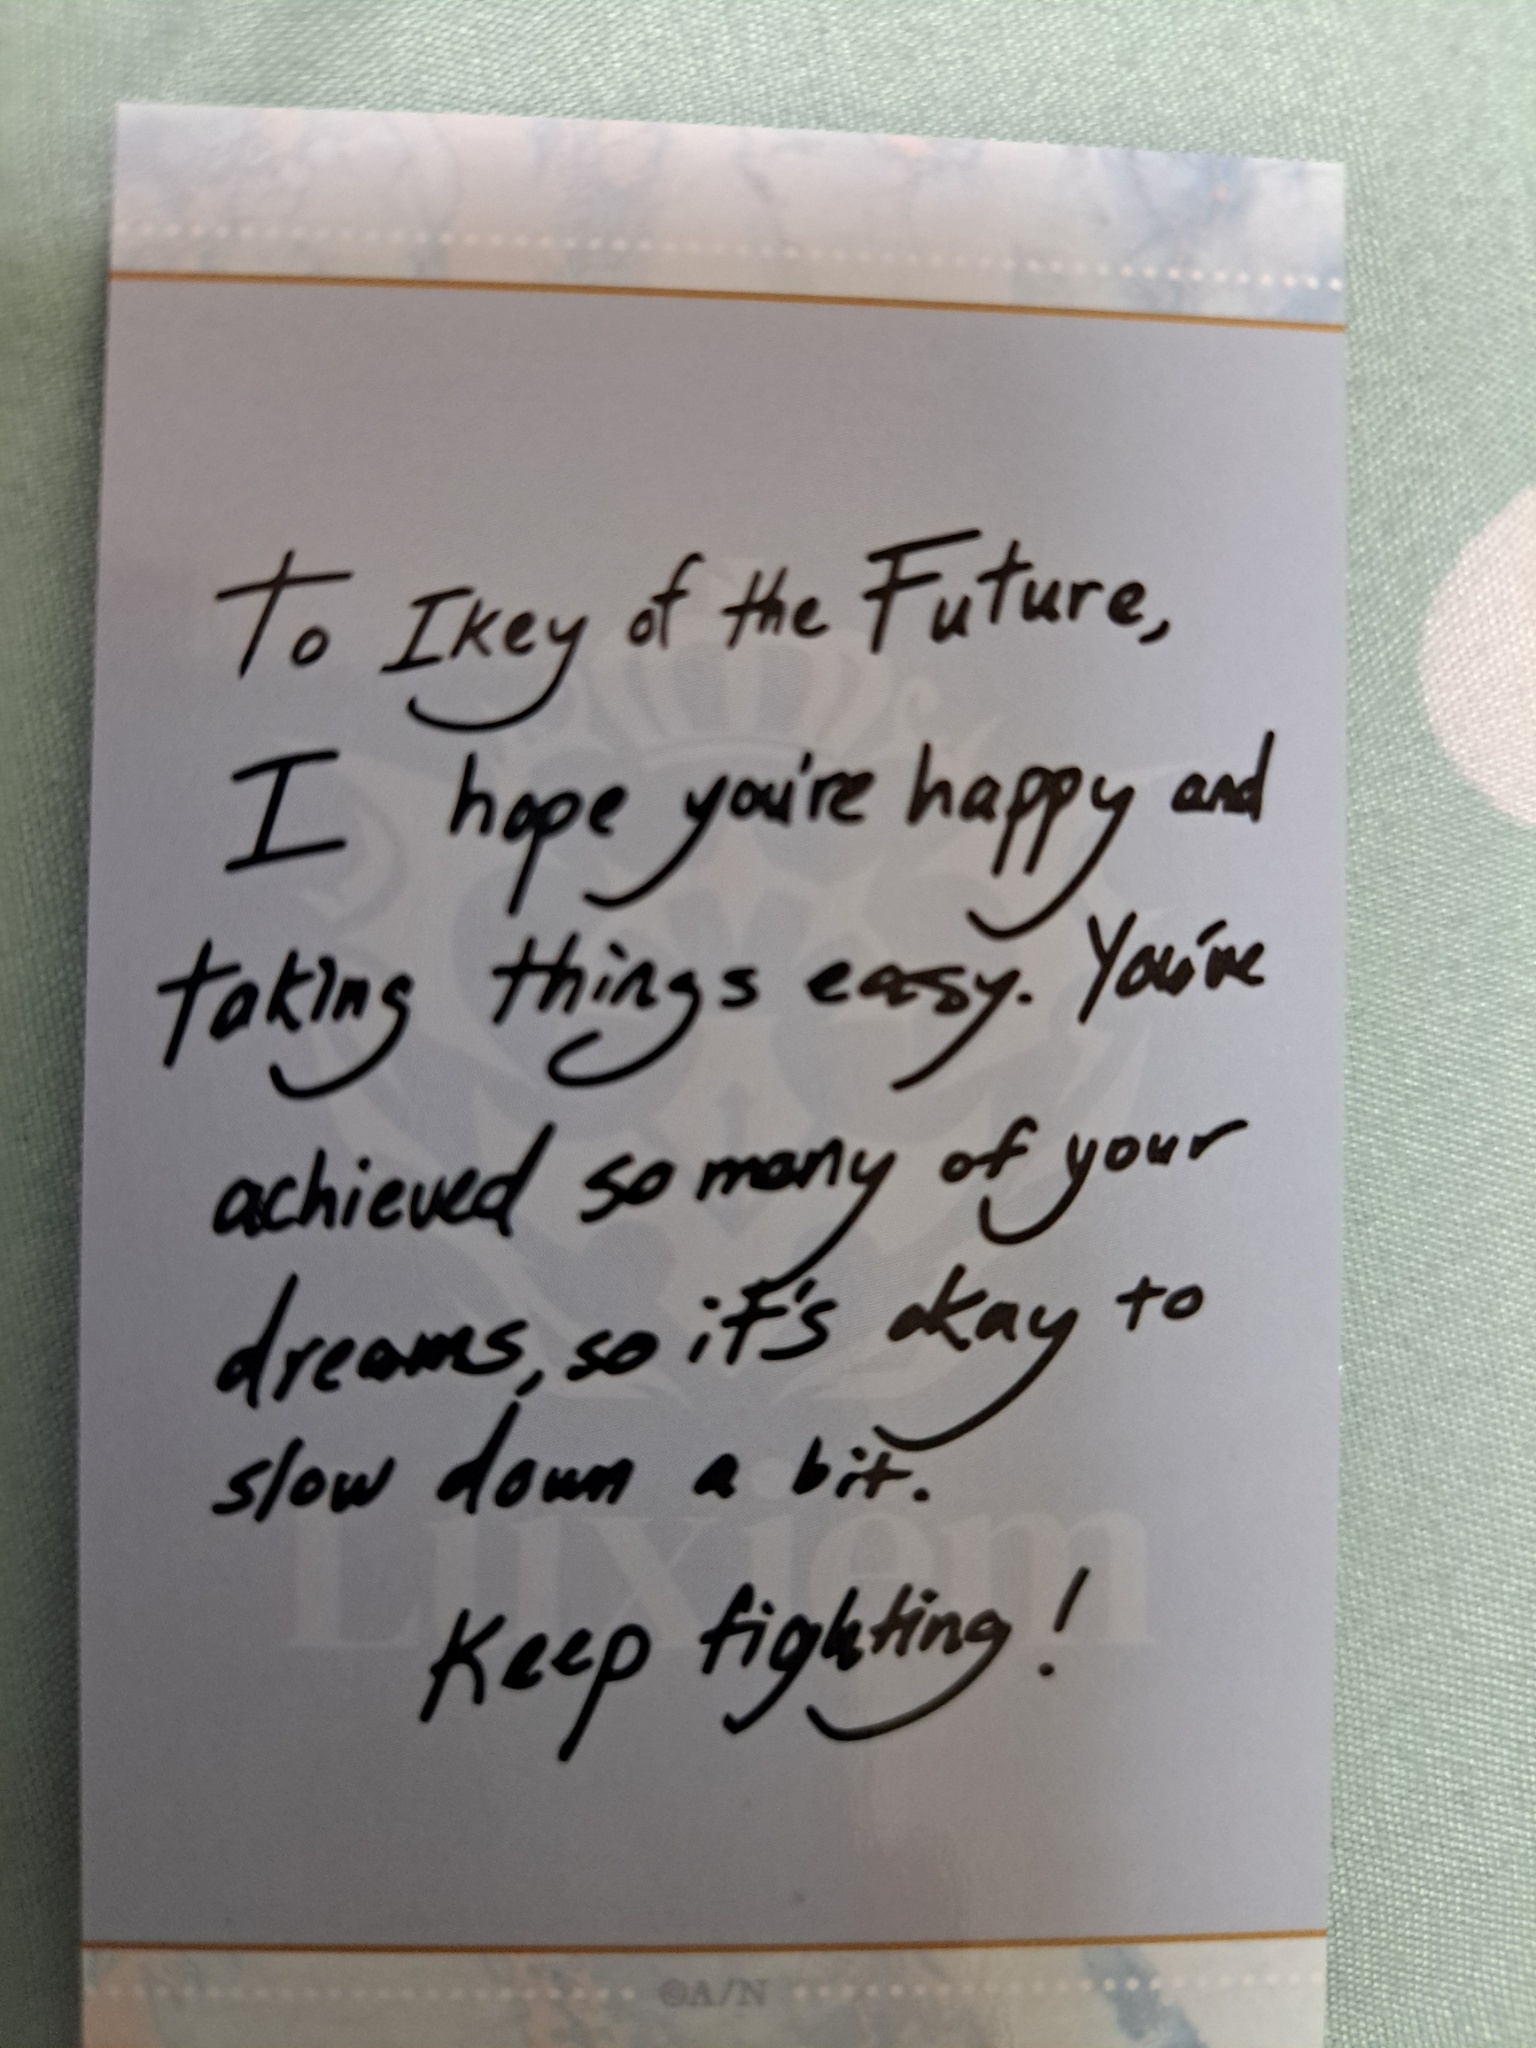 To Ikey of the Future,
I hope you're happy and
taking things easy. You've
achieved so many of your
dreams, so it's okay to
slow down a bit.
Luxiem
Keep fighting!
©A/N